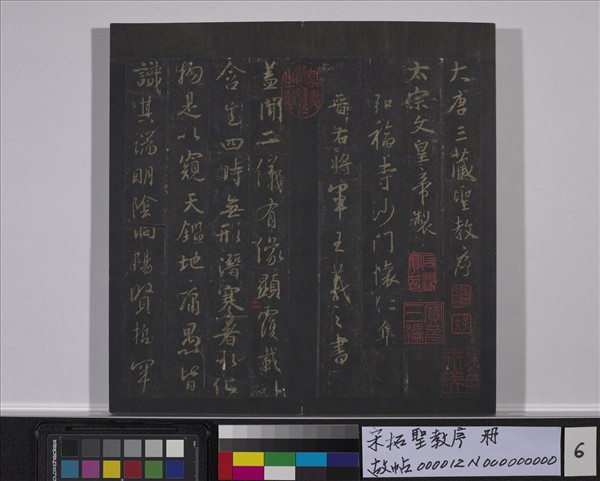 大唐三藏聖教序
太宗文皇帝製
弘福寺沙門懷仁集
晉右將軍王羲之書
蓋聞二儀有像顯覆載以
含生四時無形潛寒暑以化
物是以窺天鑑地庸愚皆
識其端明陰洞陽賢哲罕
宋拓聖教序 冊
故帖000012N000000000
6